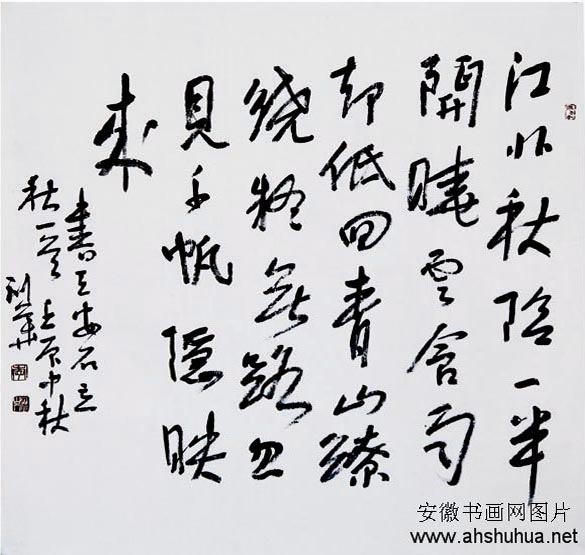 江北秋陰一半
開曉雲含雨
却低回青山繚
繞疑無路忽
見千帆隱映
來
書王安石立
秋一首 中秋
安徽书画网图片
www.ahshuhua.net